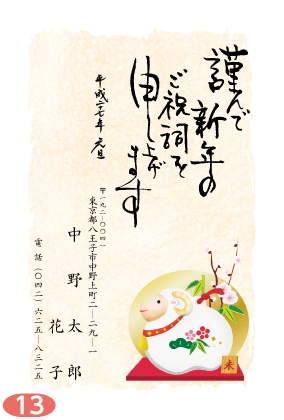 謹んで
新年の
ご祝詞を
申し上げ
ます
平成二十七年 元旦
〒一九二-〇〇四一
東京都八王子市中野上町二-二九-一
中野 太郎
花子
電話(〇四二)六二五-八三二五
未
13